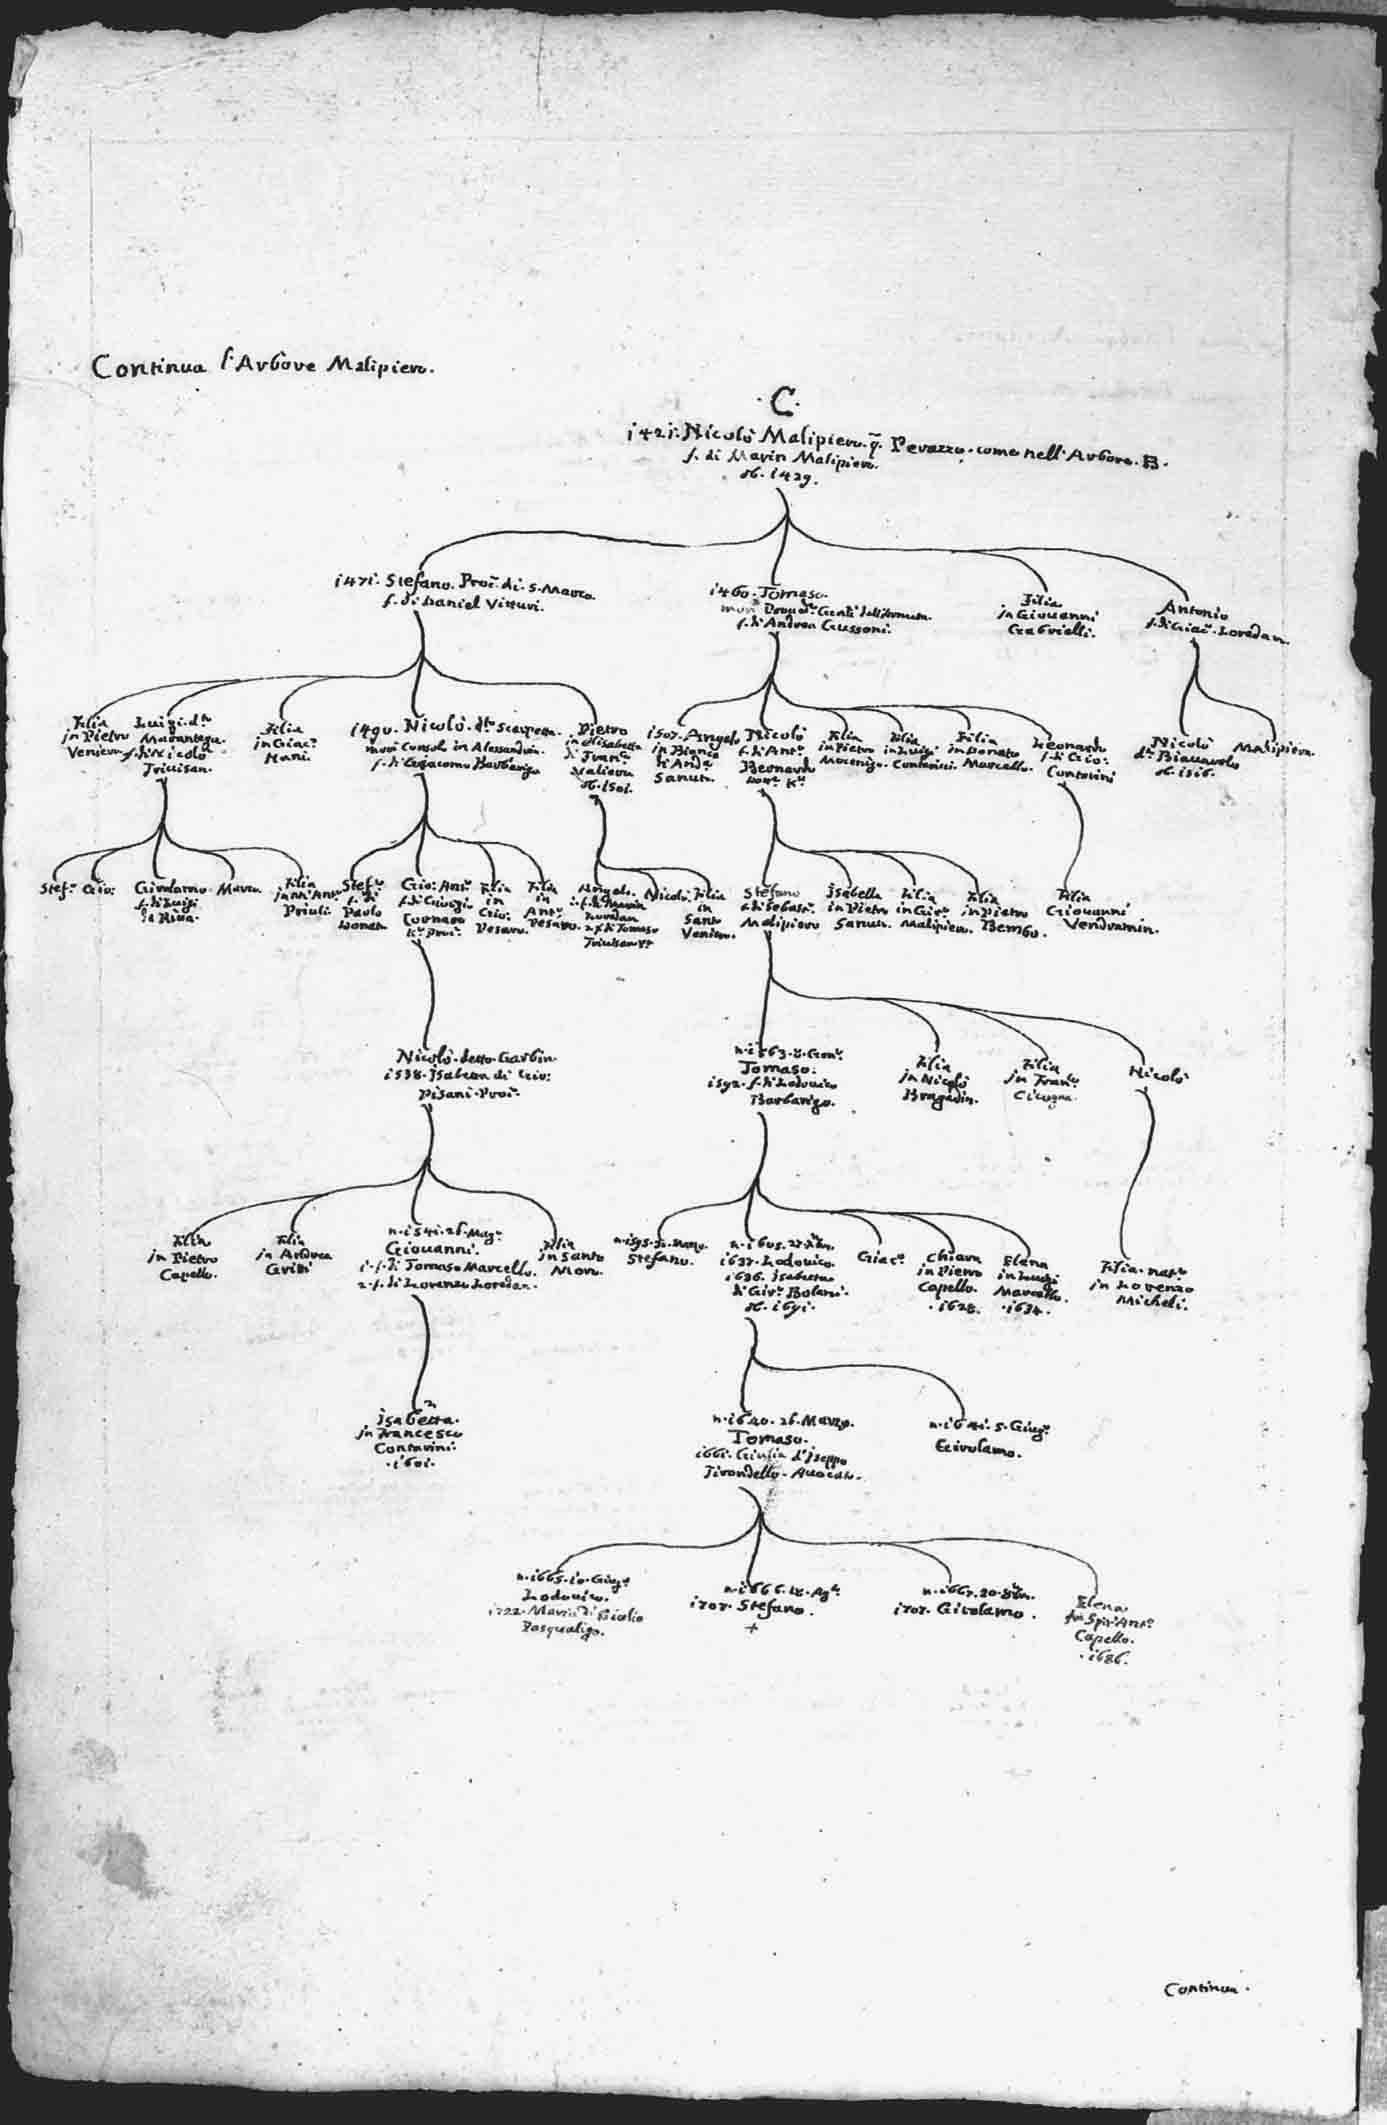 Continua l'Arbore Malipiero.
·C·
1421. Nicolò Malipiero. q. Perazzo. come nell'Arbore. B.
f. di Marin Malipiero.
ob. 1429.
1471. Stefano. Proc. di. S. Marco.
f. di Daniel Vitturi.
1460. Tomaso.
f. di Andrea Gussoni.
Filia
in Giovanni
Gabrielli.
Antonio
f. di Giac. Loredan.
Filia
in Pietro
Venier.
Luigi. dto
f. di Nicolò
Trivisan.
Filia
in Giaco
Nani.
1490. Nicolò. dto
morì Consolo in Alessandria.
f. di Barbarigo
Pietro
in Elisabetta
di Franco
ob. 1501.
1507. Angelo
in Bianca
di Anda
Sanuto.
Nicolò
f. di Anto
Bernardo
Filia
in Pietro
Mocenigo.
Filia
in Luigi
Contarini.
Filia
in Donato
Marcello.
Leonardo
f. di Gio:
Contarini
Nicolò
ob. 1516.
Malipiera.
Stefo
Gio:
Girolamo
f. di Luigi
da Riva.
Marco.
Filia
in M. Anto
Priuli.
Stefo
f. di
Paolo
Donato
Gio: Anto
f. di Giorgio
Cornaro
Kr Proc.
Filia
in
Gio:
Pesaro.
Filia
in
Anto
Pesaro.
Angelo.
1. f. di Marin
Loredan
2. f. di Tomaso
Trivisan
Nicolò.
Filia
in
Santo
Venier.
Stefano
f. di Sebast.
Malipiero
Isabella
in Pietro
Sanuto.
Filia
in Giro
Malipiero.
Filia
in Pietro
Bembo.
Filia
Giovanni
Vendramin.
Nicolò. detto. Garbin.
1538. Isabetta di Gio:
Pisani. Proc.
n. 1563. 8. Genr.
Tomaso.
1592. f. di Lodovico
Barbarigo.
Filia
in Nicolò
Bragadin.
Filia
in Franco
Cicogna.
Nicolò
Filia
in Pietro
Capello.
Filia
in Andrea
Gritti
n. 1541. 26. Mago
Giovanni.
1. f. di Tomaso Marcello.
2. f. di Lorenzo Loredan.
Filia
in Santo
Moro.
n. 1595. 31. Marzo.
Stefano.
n. 1605. 27.
1637. Lodovico.
1636. Isabetta
di Giro Bolani.
ob. 1691.
Giaco
Chiara
in Pietro
Capello.
· 1628.
Elena
in Luigi
Marcello.
· 1634.
Filia. nat.
in Lorenzo
Micheli.
Isabetta.
in Francesco
Contarini.
· 1601.
n. 1640. 26. Marzo.
Tomaso.
1661. Giulia d'Iseppo
Tirondello. Avocato.
n. 1641. 5. Giugo
Girolamo.
n. 1665. 10. Giugo
Lodovico.
1722. Maria di Giulio
Pasqualigo.
n. 1666. 18. Ago
1707. Stefano.
+
n. 1667. 20. 8bre.
1707. Girolamo.
Elena
in Spir. Anto
Capello.
· 1686.
Continua.